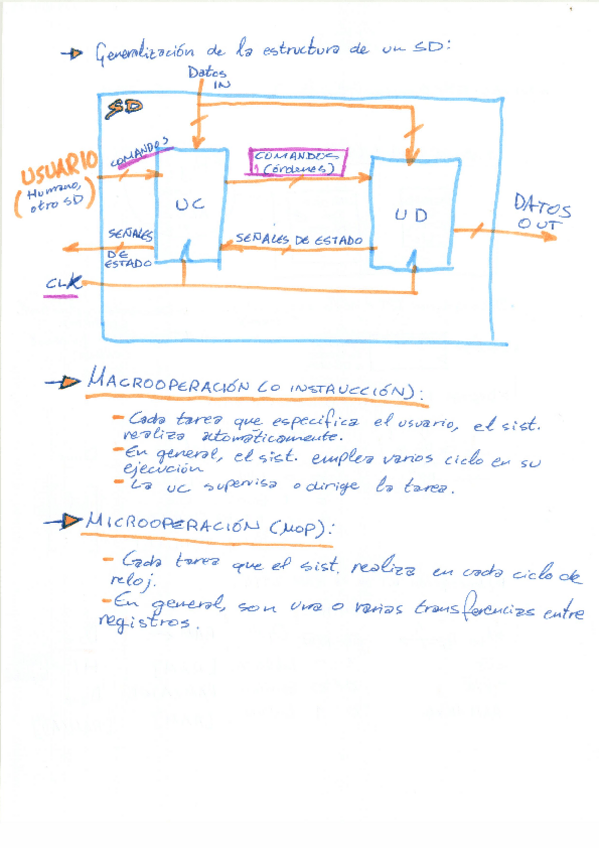 → Generalización de la estructura de un SD:
Datos
IN
SD
USUARIO
(Humano,
otro SD)
COMANDOS
UC
COMANDOS
(órdenes)
UD
DATOS
OUT
SEÑALES
DE
ESTADO
SEÑALES DE ESTADO
CLK
→ MACROOPERACIÓN (O INSTRUCCIÓN):
- Cada tarea que especifica el usuario, el sist.
realiza automáticamente.
- En general, el sist. emplea varios ciclo en su
ejecución
- La UC supervisa o dirige la tarea.
→ MICROOPERACIÓN (μOP):
- Cada tarea que el sist. realiza en cada ciclo de
reloj.
- En general, son una o varias transferencias entre
registros.